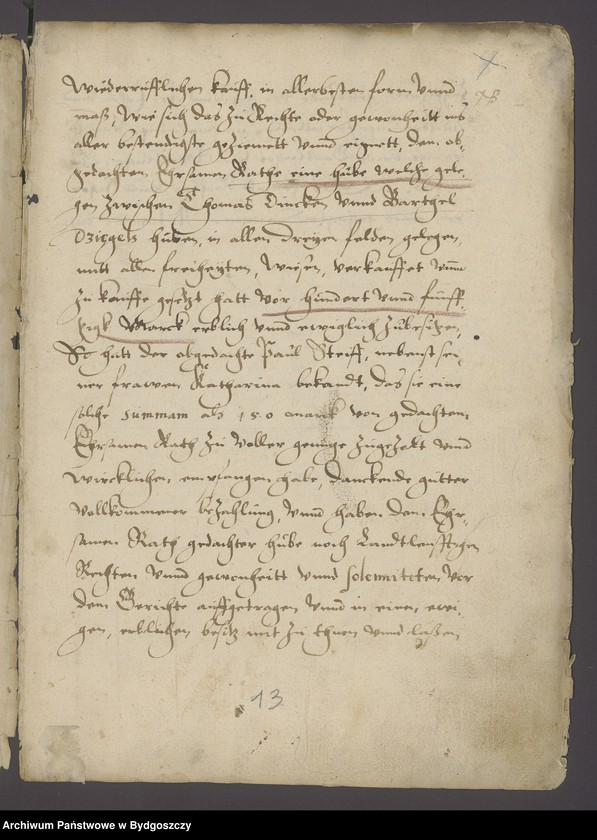 wiederrufflichen kauff, in allerbesten form vnnd
maß, wie sich das zu Rechte oder gewonheitt
aller bestendigste geziemett vnnd eignett, dem ob-
gedachten Ehrsamen Rathe eine hube welche gele-
gen zwischen Thomas Dincken vnnd Barthel
Dziegels huben, in allen dreyen felden gelegen,
mitt allen freiheyten, Wiesen, verkauffet vnnd
zu kauffe gesetzt hatt vor hundert vnnd funff-
zigk Marck erblich vnnd ewiglich zubesitzen,
So hatt der obgedachte Paul Steiff, nebenst sei-
ner frawen Katharina bekandt, das sie eine
solche summam als 150 marck von gedachten
Ehrsamen Rath zu voller genuge zugezelt vnnd
wircklichen empfangen habe, danckende gutter
vollkommener bezahlung, vnnd haben dem Ehr-
samen Rath gedachter hube noch Landtleufftigen
Rechten vnnd gewonheitt vnnd solemniteten vor
dem Gerichte auffgetragen vnnd in einen ewi-
gen, erblichen besitz mit zu thuen vnnd laßen
13
Archiwum Państwowe w Bydgoszczy